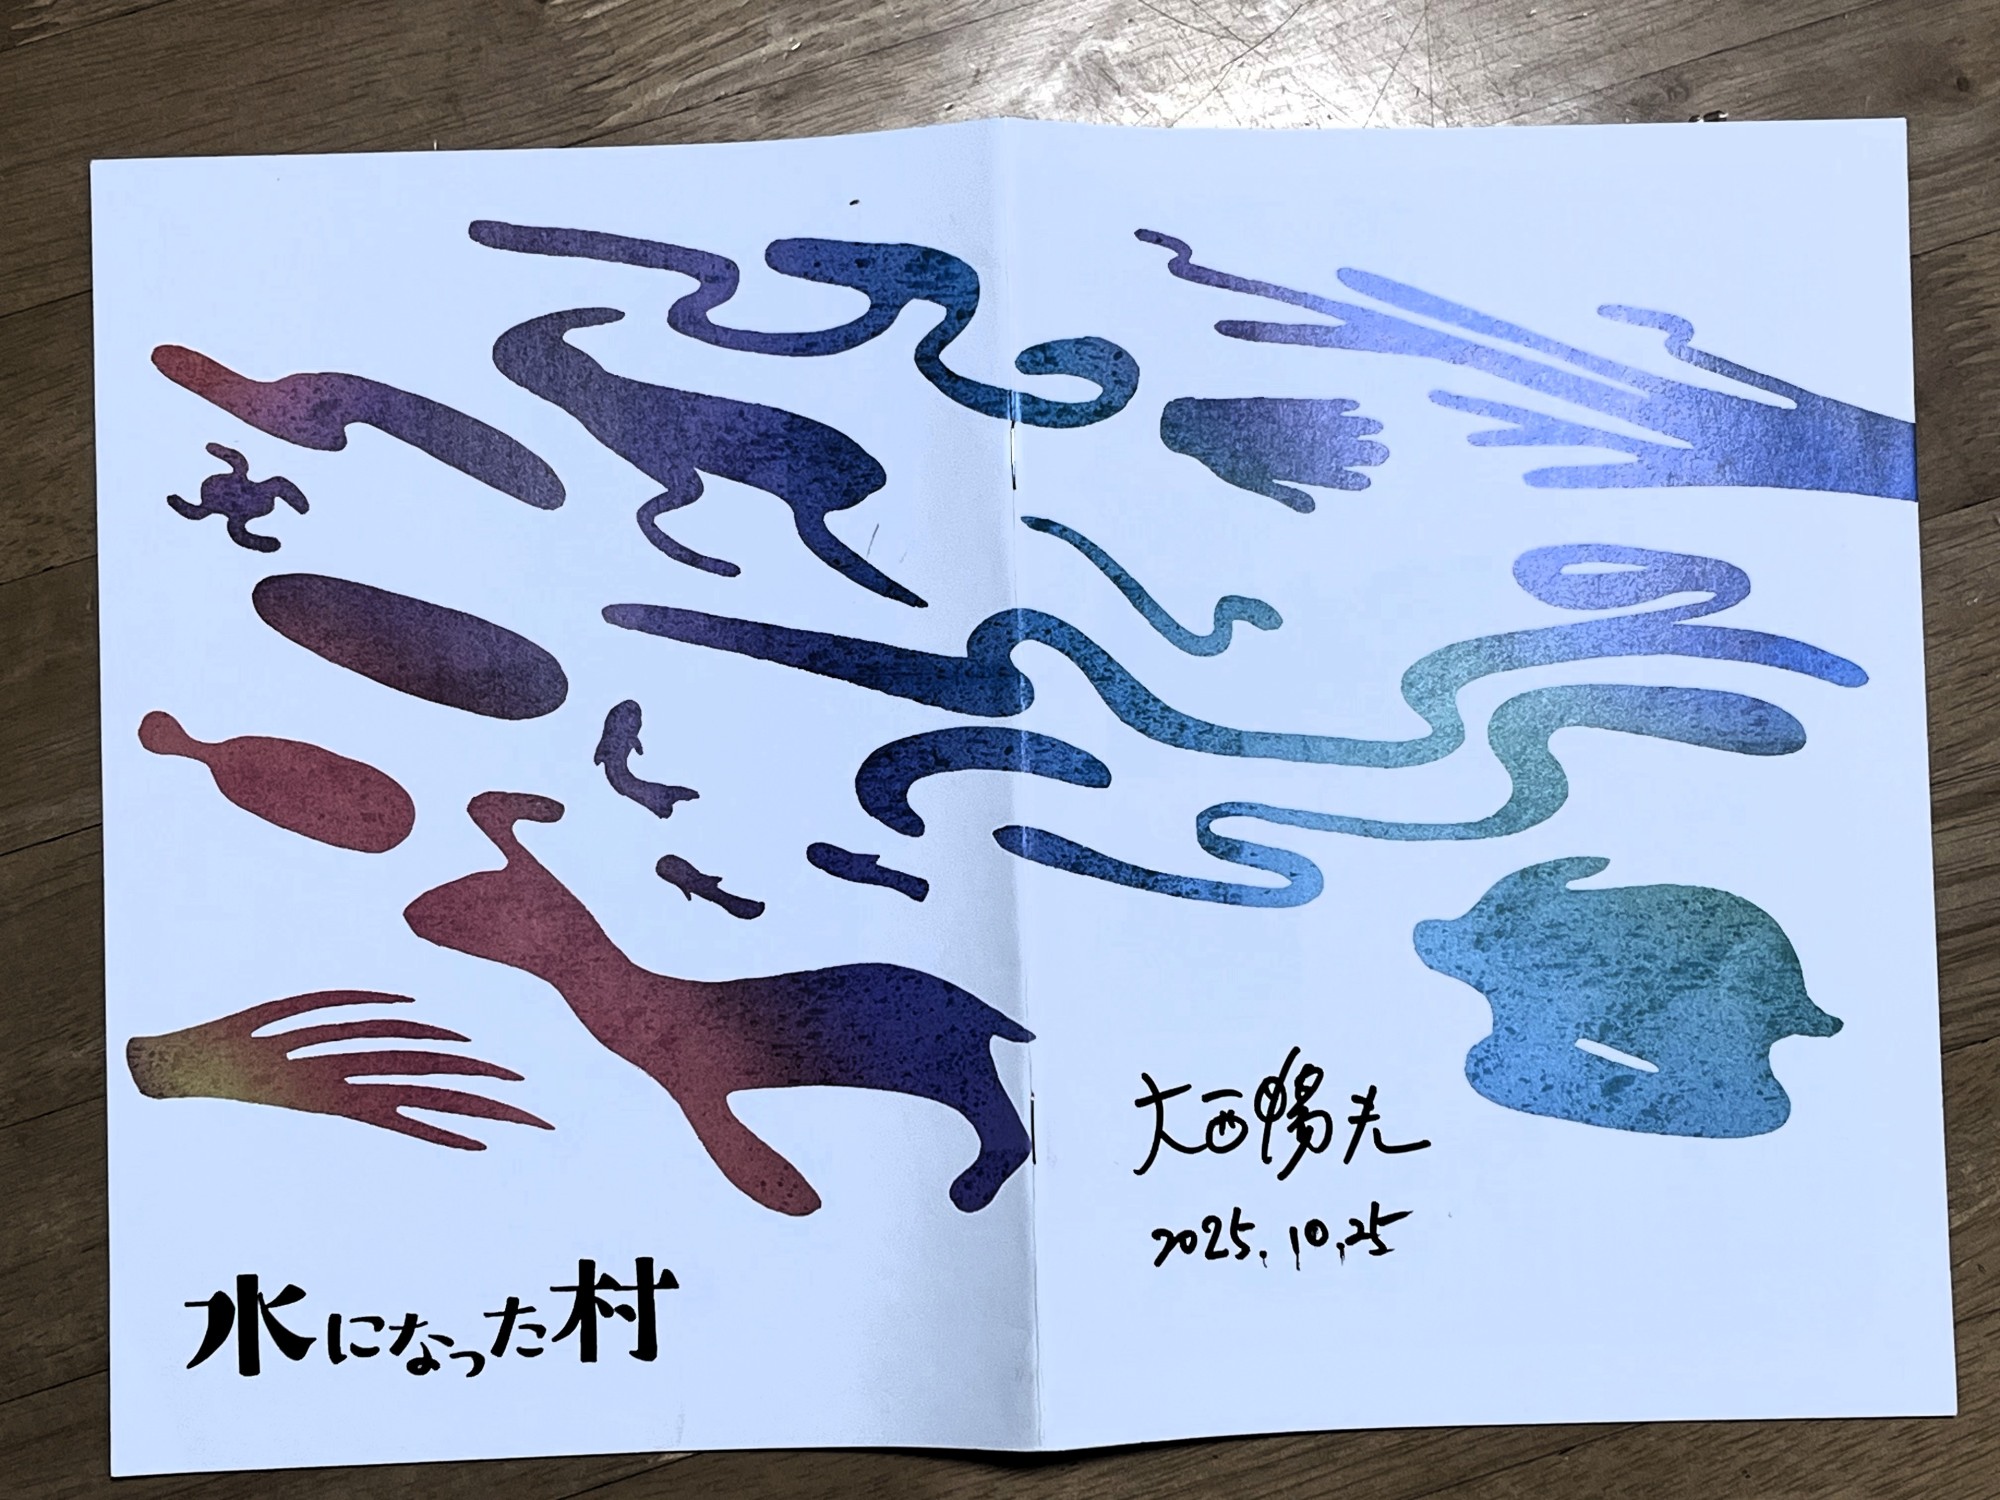 水になった村
大西暢夫
2025.10.25